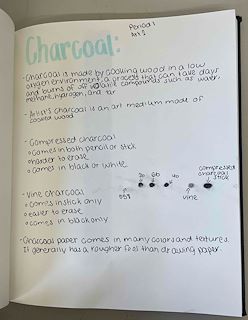 Period 1
Art 2
Charcoal:
-Charcoal is made by cooking wood in a low
oxygen environment, a process that can take days
and burns off volatile compounds such as water,
methane, hydrogen, and tar
-Artist's charcoal is an art medium made of
cooked wood
-Compressed charcoal
○comes in both pencil or stick
○harder to erase
○comes in black or white
compressed
charcoal
stick
2b 6b 4b
-Vine charcoal
○comes in stick only
○easier to erase
○comes in black only
vine
-Charcoal paper comes in many colors and textures.
It generally has a rougher feel than drawing paper.